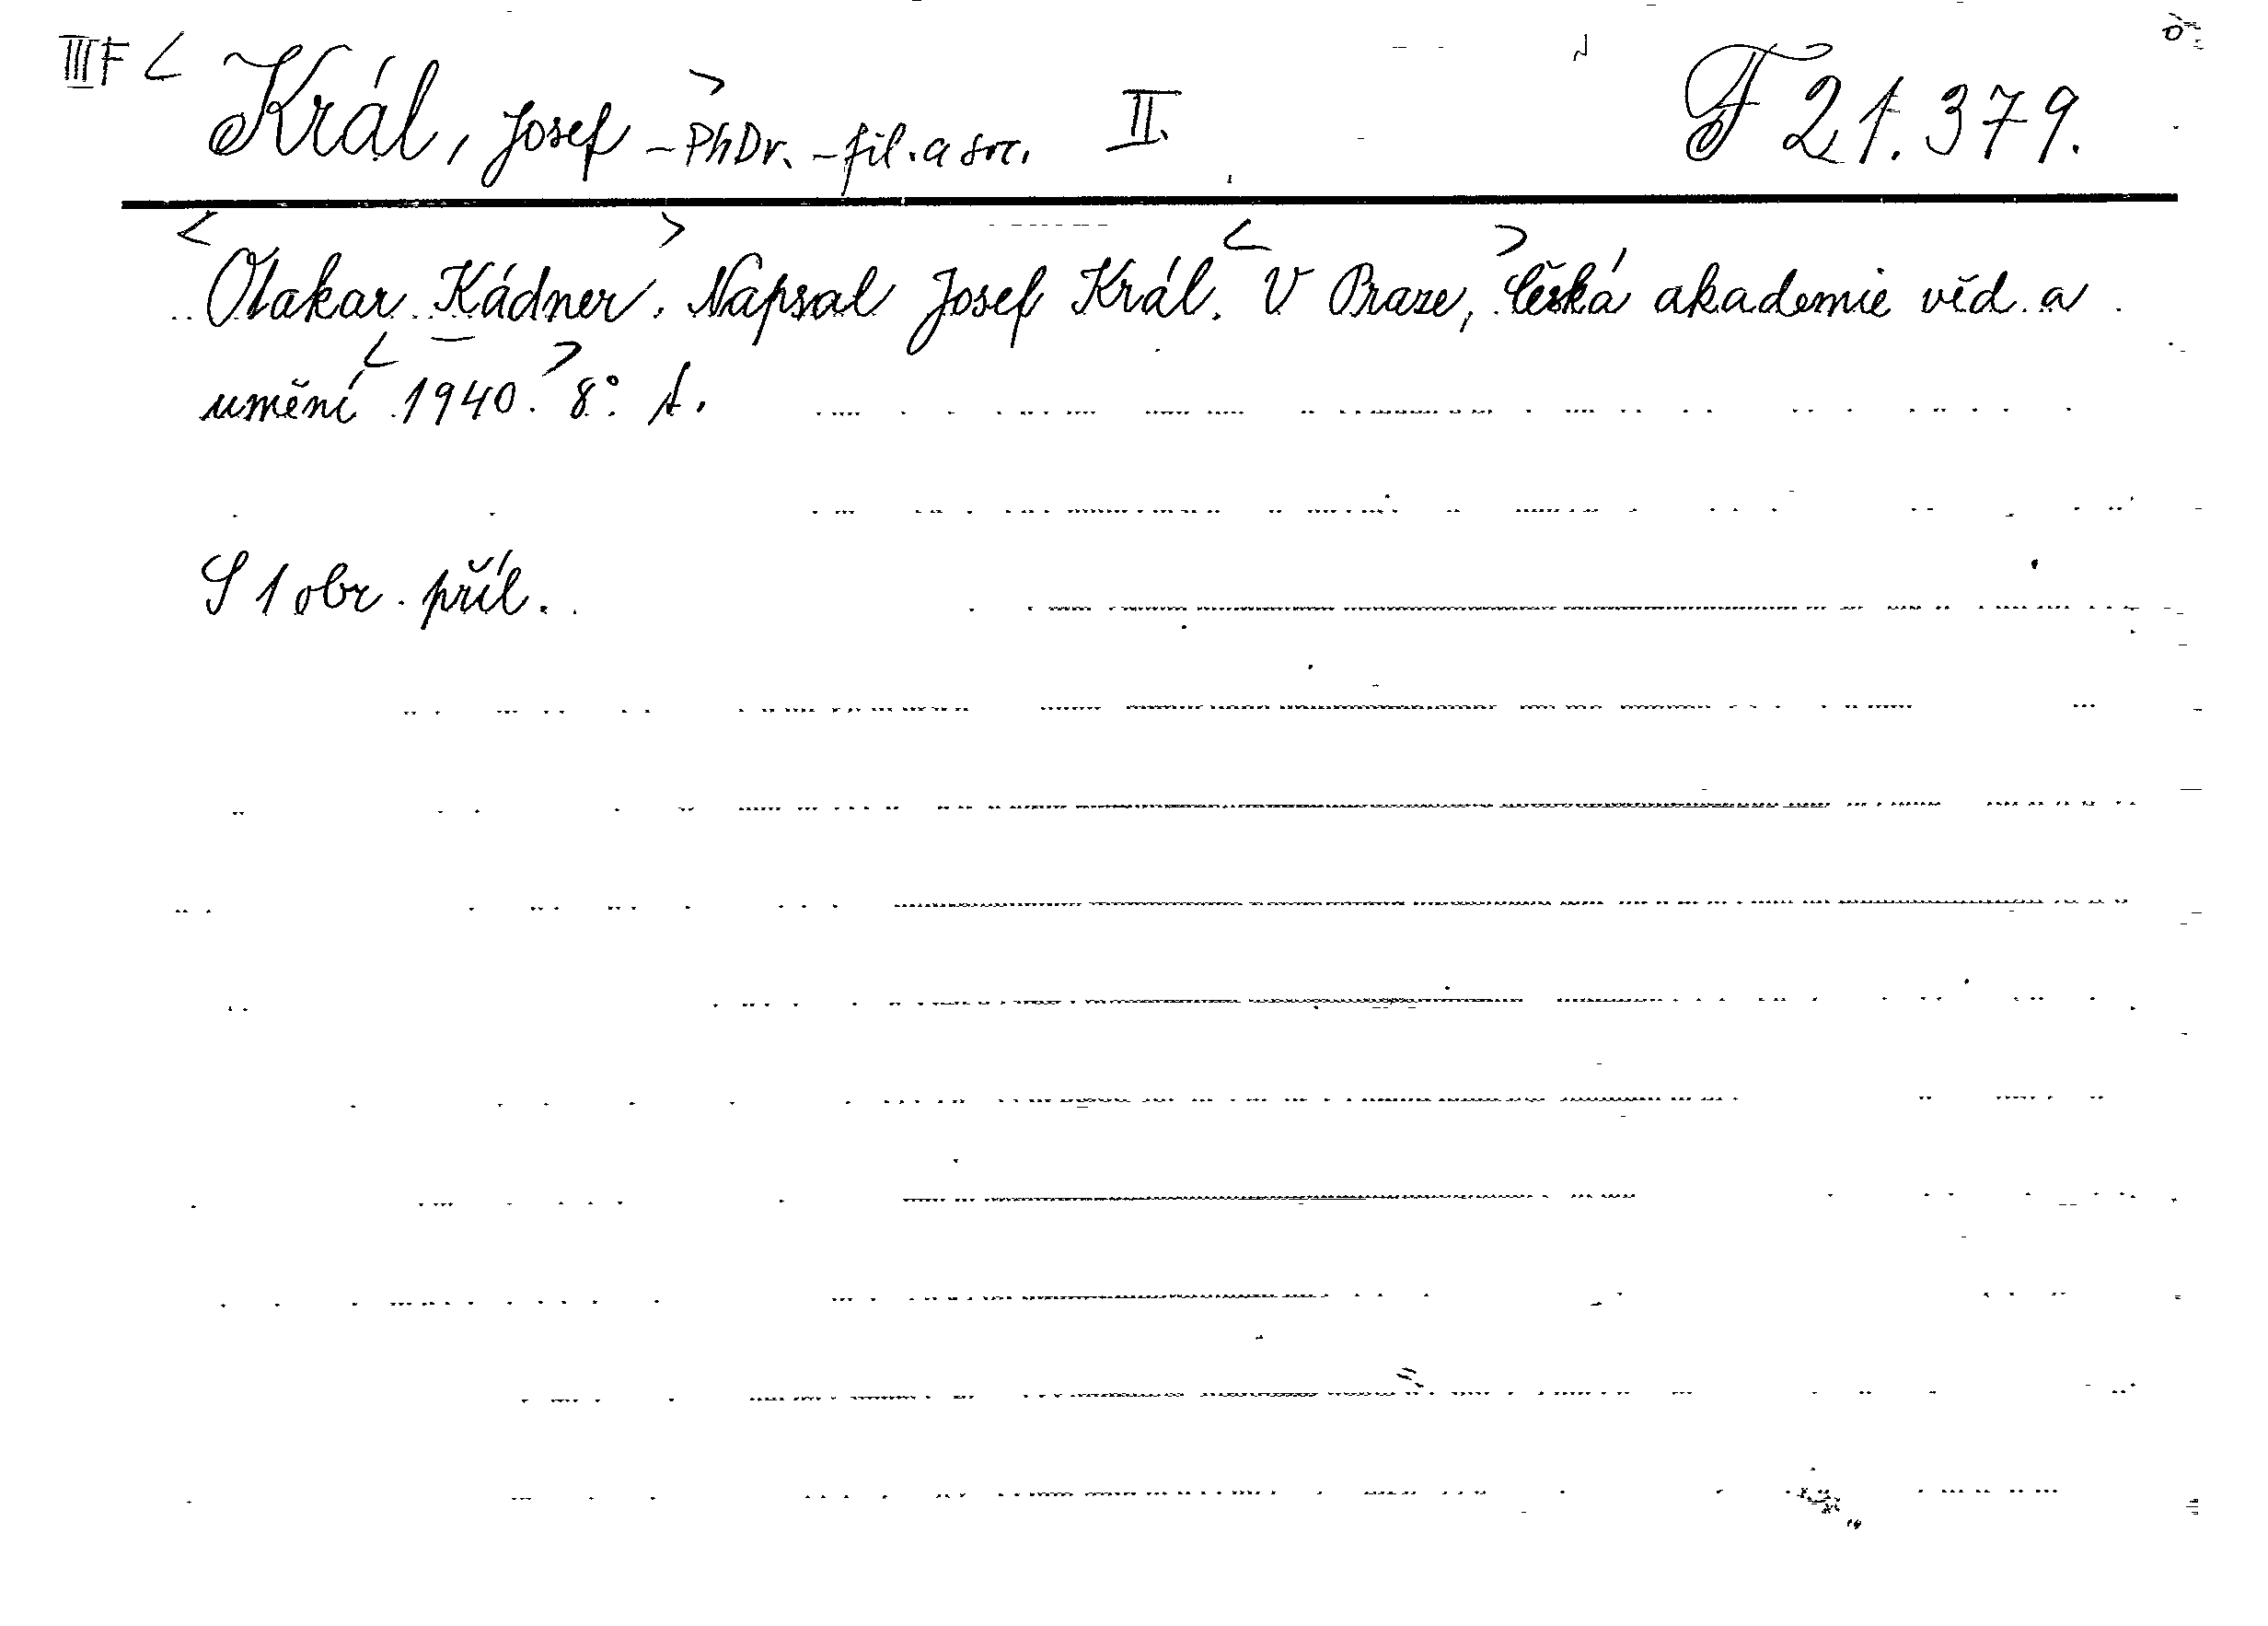 III F < Král, Josef > – PhDr. – fil. a soc. II. F 21.379.
<Otakar Kádner>. Napsal Josef Král. <V Praze,> Česká akademie věd a
umění <1940.> 8°. A.
S 1 obr. příl.